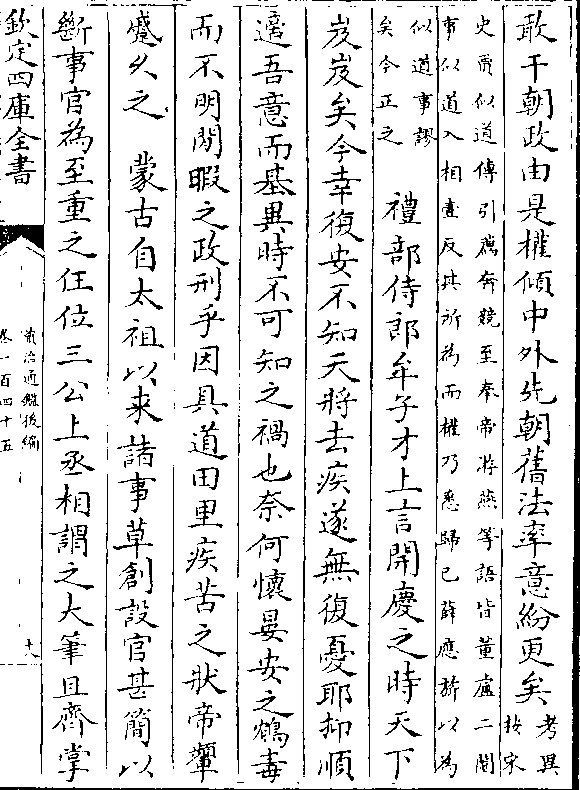 敢干朝政由是權傾中外先朝舊法率意紛更矣考異按宋
史賈似道傳引薦奔競至奉帝游燕等語皆董盧二閹
事似道入相盡反其所為而權乃悉歸已薛應旂以為
似道事謬
矣今正之
禮部侍郎牟子才上言開慶之時天下
岌岌矣今幸復安不知天將去疾遂無復憂耶抑順
適吾意而基異時不可知之禍也奈何懷晏安之鴆毒
而不明閒暇之政刑乎因具道田里疾苦之狀帝顰
蹙久之　蒙古自太祖以來諸事草創設官甚簡以
斷事官為至重之任位三公上丞相謂之大筆且齊掌
欽定四庫全書
資治通鑑後編
卷一百四十五
十八